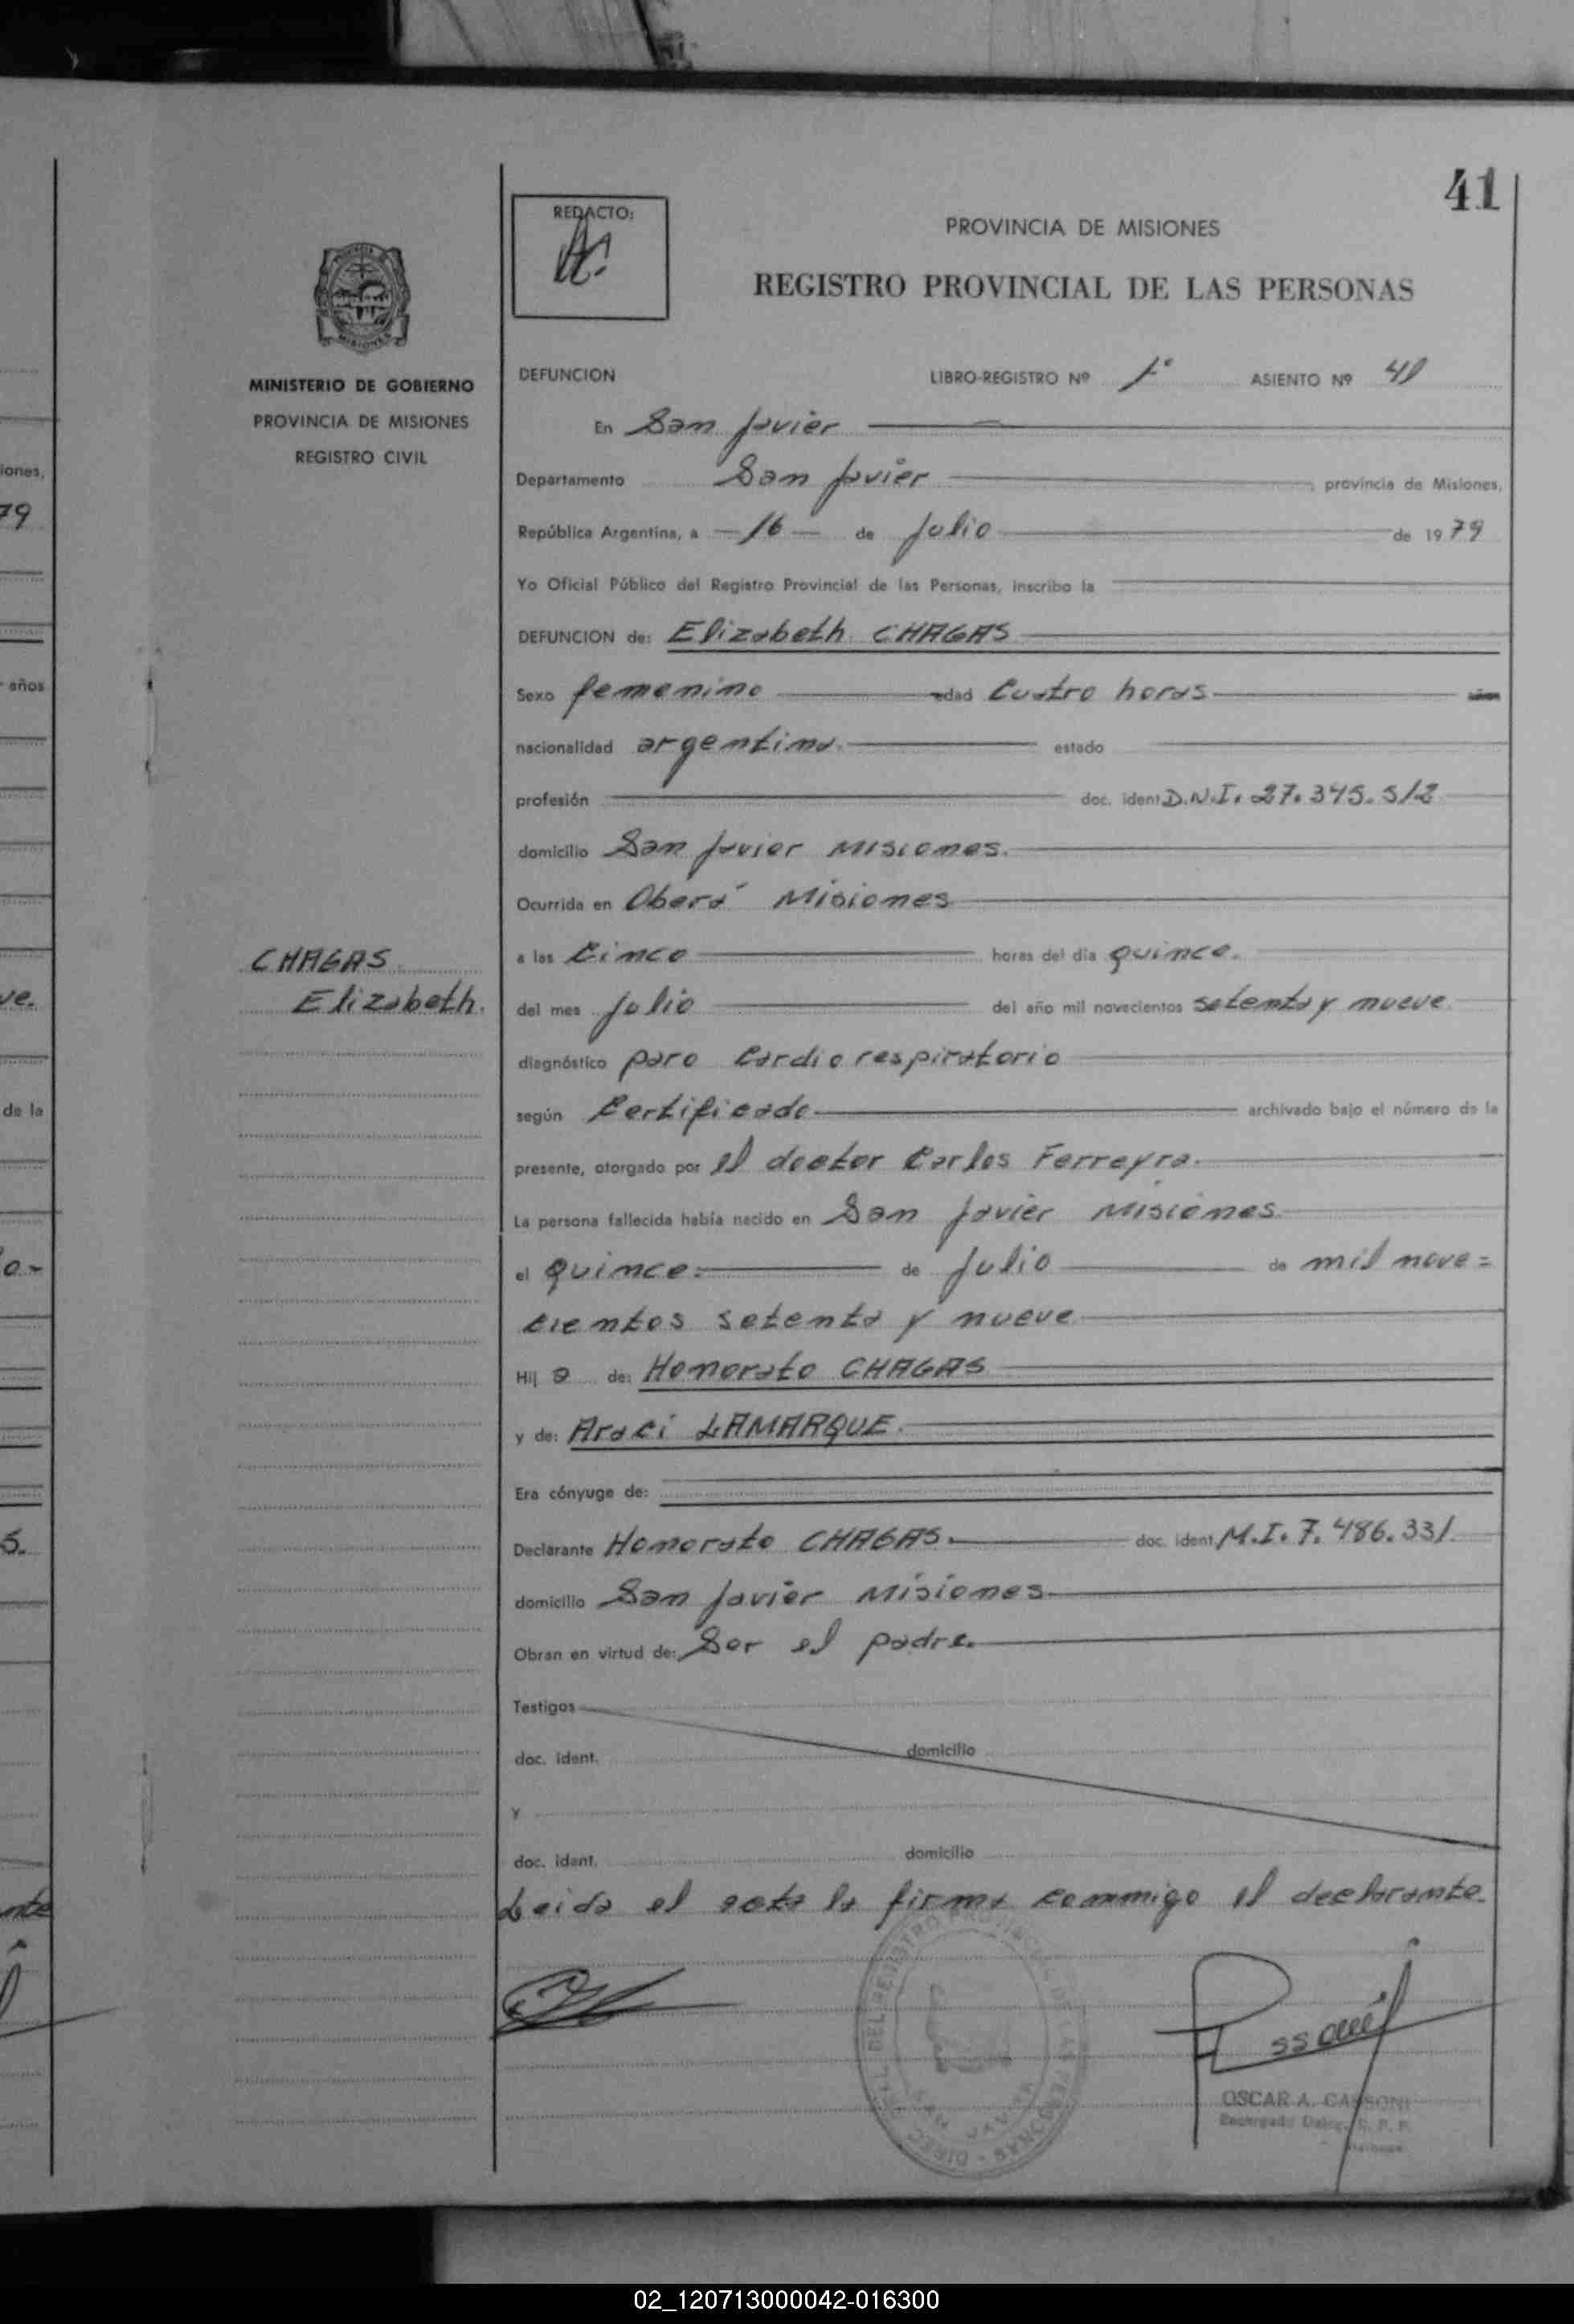 41
REDACTO:
PROVINCIA DE MISIONES
REGISTRO PROVINCIAL DE LAS PERSONAS
MINISTERIO DE GOBIERNO
PROVINCIA DE MISIONES
REGISTRO CIVIL
DEFUNCION LIBRO-REGISTRO Nº 1º ASIENTO Nº 41
En San Javier
Departamento San Javier provincia de Misiones,
República Argentina, a 16 de Julio de 1979
Yo Oficial Público del Registro Provincial de las Personas, inscribo la
DEFUNCION de: Elizabeth CHAGAS
Sexo femenino edad Cuatro horas
nacionalidad argentina. estado
profesión doc. ident D.N.I. 27.345.512
domicilio San Javier Misiones.
Ocurrida en Oberá Misiones
a las Cinco horas del día quince.
del mes Julio del año mil novecientos setenta y nueve.
diagnóstico paro Cardio respiratorio
según Certificado archivado bajo el número de la
presente, otorgado por el doctor Carlos Ferreyra.
La persona fallecida había nacido en San Javier Misiones.
el quince. de Julio de mil nove=
cientos setenta y nueve
Hij a de: Honorato CHAGAS
y de: Araci LAMARQUE.
Era cónyuge de:
Declarante Honorato CHAGAS. doc. ident. M.I. 7.486.331.
domicilio San Javier Misiones
Obran en virtud de: Ser el padre.
Testigos
doc. ident. domicilio
Y
doc. ident. domicilio
Leida el acta la firma conmigo el declarante.
CHAGAS
Elizabeth.
OSCAR A. CASSONI
iones,
79
años
ve.
de la
o-
5.
nte
02_120713000042-016300